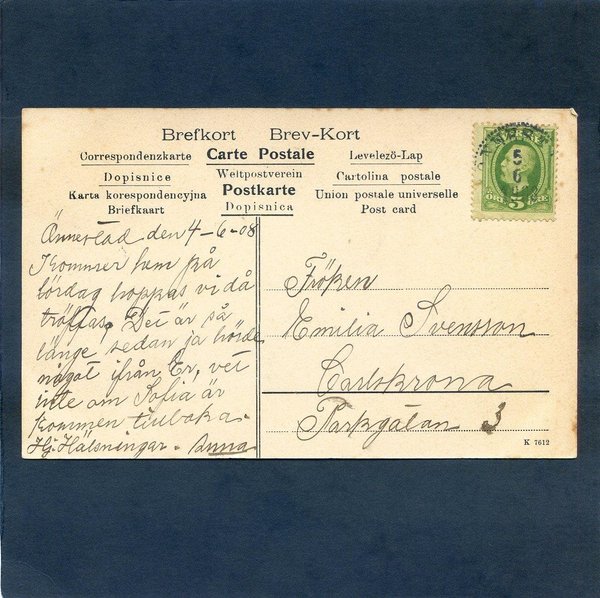 Brefkort Brev-Kort
Correspondenzkarte Carte Postale Levelező-Lap
Dopisnice Weltpostverein Cartolina postale
Karta korespondencyjna Postkarte Union postale universelle
Briefkaart Dopisnica Post card
Önnestad den 4-6-08
Kommer hem på
lördag hoppas vi då
träffas, Det är så
länge sedan ja hörde
något ifrån Er, vet
inte om Sofia är
kommen tillbaka.
Hj. Hälsningar. Anna
Fröken
Emilia Svensson
Carlskrona
Parkgatan 3
K 7612
5
6
ÖRE 5 ÖRE